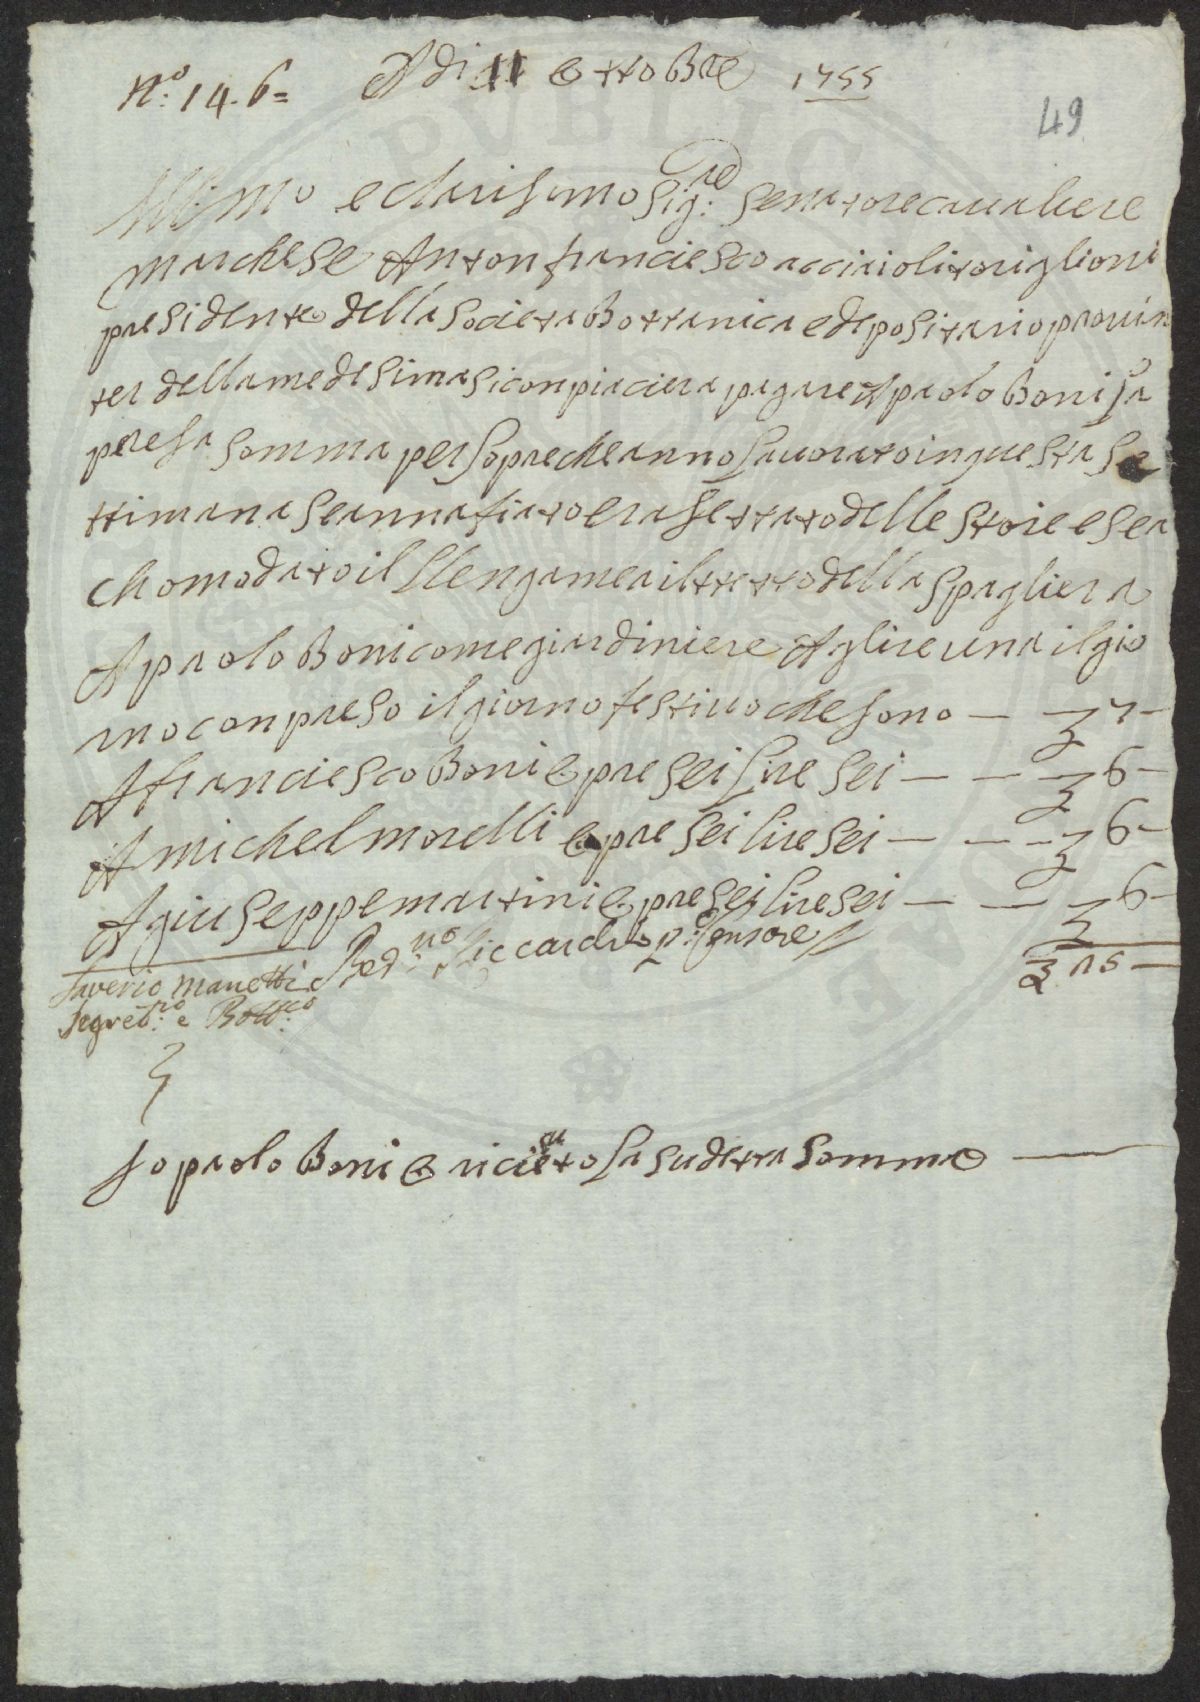 N.º 14. 6=
A di 11 ottobre 1755
49
Ill.mo e clarisimo Sig.re Senatore cavaliere
marchese Anton franciesco acciaioli toriglioni
presidente della Societa Bottanica e depositario provin
ter della medesima si conpiaciera pagare A paolo Boni la
presa somma per lopre che anno lavorato in questa Se
ttimana Se annafiato e rasettato delle stoie e Sea
chomodato il legname a il tetto della Spagliera
A paolo Boni come giardiniere A lire una il gio
rno conpreso il giorno festivo che sono — 7 —
A franciesco Boni e pre sei lire sei — — 6 —
A michel morelli e pre sei lire sei — — 6 —
A giuseppe martini e pre sei lire sei — — 6 —
Saverio Manetti Riccardi Censore 25 —
Segret.rio e Bott.co
Io paolo Boni e riceuto la sudetta Somma —